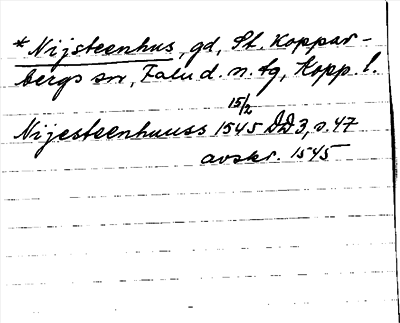 *Nijsteenhus, gd, St. Koppar-
bergs sn, Falu d. n. tg, Kopp. l.
15/2
Nijesteenhuuss 1545 DD3, s. 47
avskr. 1545